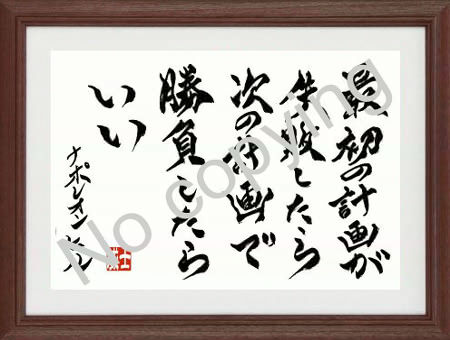 最初の計画が
失敗したら
次の計画で
勝負したら
いい
ナポレオン・ヒル
No copying